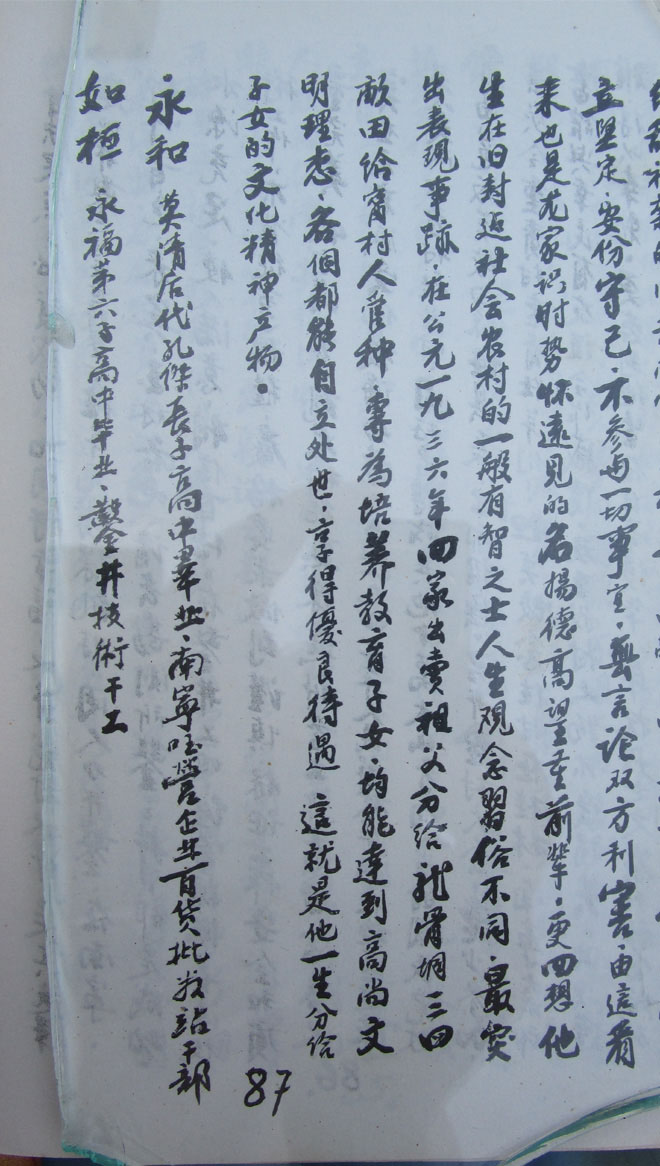 立坚定·安份守己·不参与一切事宜·無言论双方利害·由這看
来也是龙家识时势怀遠見的名揚德高望重前辈·更回想他
生在旧封逅社会农村的一般有智之士人生观念習俗不同·最突
出表現事跡·在公元一九三六年回家出卖祖父分给龍骨垌三四
畝田给甯村人管种·專為培养教育子女·均能達到高尚文
明理悉·各個都能自立处世·享得優良待遇 這就是他一生分给
子女的文化精神产物。
永和 英清后代孔傑長子高中畢业·南寧国营企业百货批发站干部
如桓 永福第六子高中毕业·鑿井技術干工
87